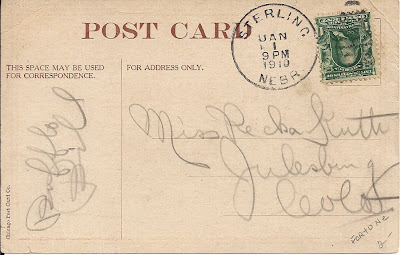 POST CARD
THIS SPACE MAY BE USED
FOR CORRESPONDENCE.
FOR ADDRESS ONLY.
STERLING
JAN
1
9 PM
1910
NEBR.
Buffalo
Bill
Miss Recka Guth
Julesburg
Colo
FORTUNE
2-
Chicago Post Card Co.